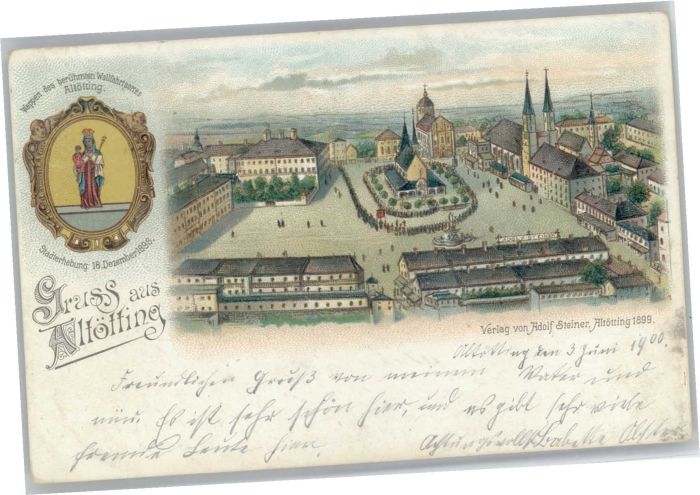 Wappen des berühmten Wallfahrtsortes
Altötting.
Stadterhebung: 18. Dezember 1898.
Gruss aus
Altötting
ADOLF STEINER
Verlag von Adolf Steiner, Altötting 1899.
Altötting den 3 Juni 1900.
Freundlichen Gruß von meinem Vater und
mir. Es ist sehr schön hier, und es gibt sehr viele
fremde Leute hier.
Achtungsvollst Babette